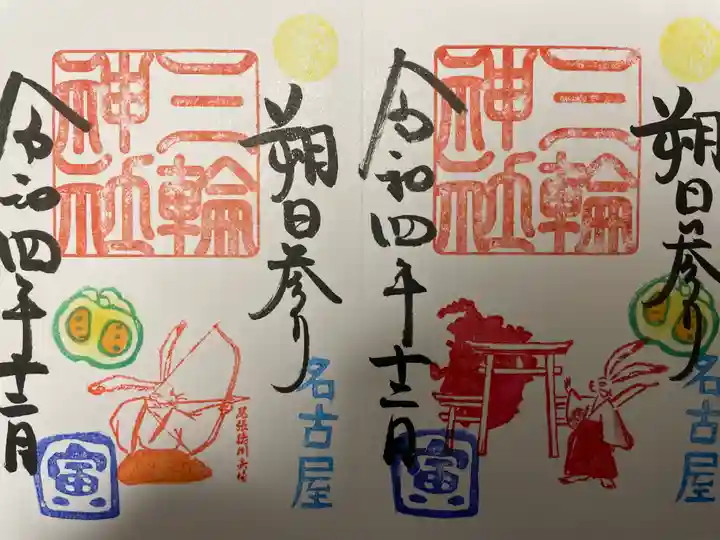 朔日参り
名古屋
三輪
神社
尾張徳川矢場
令和四年十二月
寅
朔日参り
名古屋
三輪
神社
令和四年十二月
寅